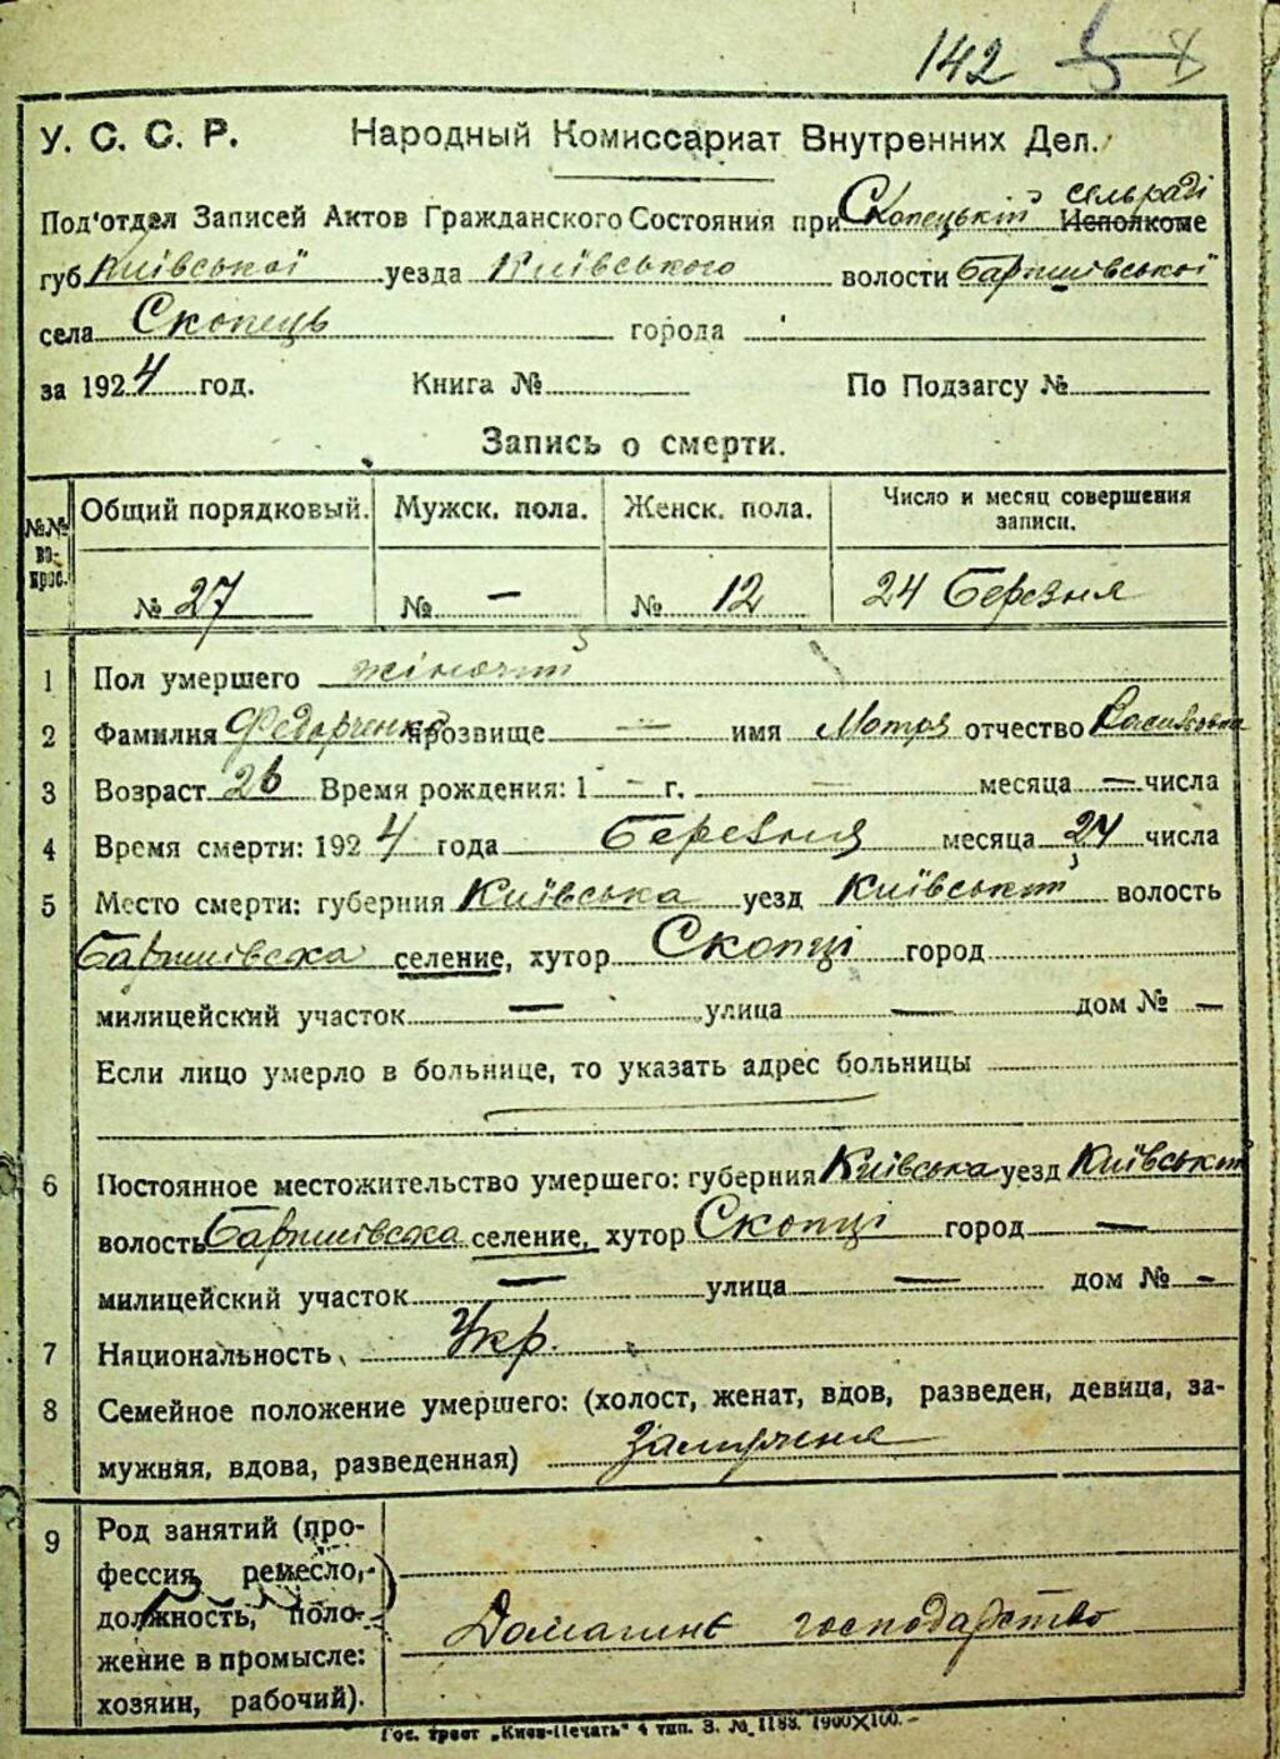 142
У. С. С. Р. Народный Комиссариат Внутренних Дел.
Под'отдел Записей Актов Гражданского Состояния при Скопецькій сільраді Исполкоме
губ Київської уезда Київського волости Баришівської
села Скопець города
за 1924 год. Книга № По Подзагсу №
Запись о смерти.
№№ во-прос. Общий порядковый. Мужск. пола. Женск. пола. Число и месяц совершения записи.
№ 27 № — № 12 24 Березня
1 Пол умершего жіночій
2 Фамилия Федорченко прозвище — имя Мотря отчество Василівна
3 Возраст 26 Время рождения: 1 — г. — месяца — числа
4 Время смерти: 1924 года Березня месяца 24 числа
5 Место смерти: губерния Київська уезд Київський волость
Баришівська селение, хутор Скопці город
милицейский участок — улица — дом № —
Если лицо умерло в больнице, то указать адрес больницы
6 Постоянное местожительство умершего: губерния Київська уезд Київський
волость Баришівська селение, хутор Скопці город —
милицейский участок — улица — дом № —
7 Национальность Укр.
8 Семейное положение умершего: (холост, женат, вдов, разведен, девица, за-
мужняя, вдова, разведенная) Замужня
9 Род занятий (про-
фессия, ремесло,
должность, поло-
жение в промысле:
хозяин, рабочий).
Домашнє господарство
Гос. трест „Киев-Печать“ 4 тип. З. № 1188. 1900×100.